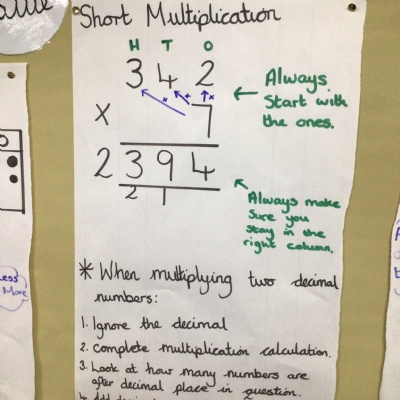 Short Multiplication
H T O
3 4 2
x 7
2 3 9 4
2 1
Always
Start with
the ones.
Always make
Sure you
stay in the
right column.
* When multiplying two decimal
numbers:
1. Ignore the decimal
2. complete multiplication calculation.
3. Look at how many numbers are
after decimal place in question.
ess
More